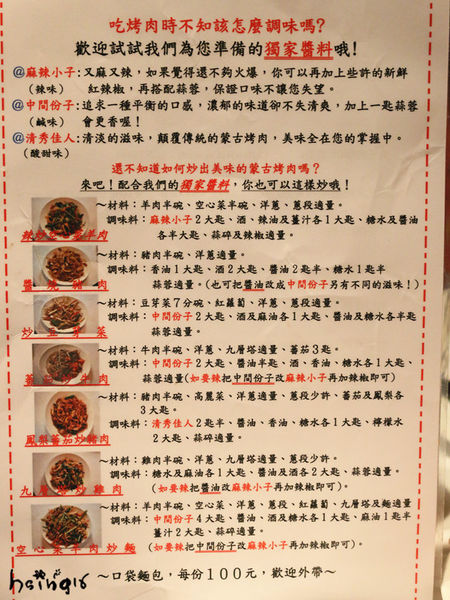 吃烤肉時不知該怎麼調味嗎?
歡迎試試我們為您準備的獨家醬料哦!
@麻辣小子:又麻又辣,如果覺得還不夠火爆,你可以再加上些許的新鮮
(辣味) 紅辣椒,再搭配蒜蓉,保證口味不讓您失望。
@中間份子:追求一種平衡的口感,濃郁的味道卻不失清爽,加上一匙蒜蓉
(鹹味) 會更香喔!
@清秀佳人:清淡的滋味,顛覆傳統的蒙古烤肉,美味全在您的掌握中。
(酸甜味)
還不知道如何炒出美味的蒙古烤肉嗎?
來吧!配合我們的獨家醬料,你也可以這樣炒哦!
~材料:羊肉半碗、空心菜半碗、洋蔥、蔥段適量。
調味料:麻辣小子2大匙、酒、辣油及薑汁各1大匙、糖水及醬油
各半大匙、蒜碎及辣椒適量。
辣炒空心菜羊肉
~材料:豬肉半碗、洋蔥適量。
調味料:香油1大匙、酒2大匙、醬油2匙半、糖水1匙半
蒜蓉適量。(也可把醬油改成中間份子另有不同的滋味!)
醬爆豬肉
~材料:豆芽菜7分碗、紅蘿蔔、洋蔥、蔥段適量。
調味料:中間份子2大匙、酒及麻油各1大匙、醬油及糖水各半匙
蒜蓉適量。
炒豆芽菜
~材料:牛肉半碗、洋蔥、九層塔適量、蕃茄3匙。
調味料:中間份子2大匙、醬油半匙、酒、香油、糖水各1大匙、
蒜蓉適量(如要辣把中間份子改麻辣小子再加辣椒即可)
蕃茄炒牛肉
~材料:豬肉半碗、高麗菜、洋蔥適量、蔥段少許、蕃茄及鳳梨各
3大匙。
調味料:清秀佳人2匙、醬油、香油、糖水各1大匙、檸檬水
2大匙、蒜碎適量。
鳳梨蕃茄炒豬肉
~材料:雞肉半碗、洋蔥、九層塔適量、蔥段少許。
調味料:糖水及麻油各1大匙、醬油及酒各2大匙、蒜蓉適量。
(如要辣把醬油改麻辣小子再加辣椒即可)。
九層塔炒雞肉
~材料:羊肉半碗、空心菜、洋蔥、蔥段、紅蘿蔔、九層塔及麵適量
調味料:中間份子4大匙、醬油、酒及糖水各1大匙、麻油1匙半
薑汁2大匙、蒜碎適量。
空心菜羊肉炒麵 (如要辣把中間份子改麻辣小子再加辣椒即可)。
~口袋麵包,每份100元,歡迎外帶~